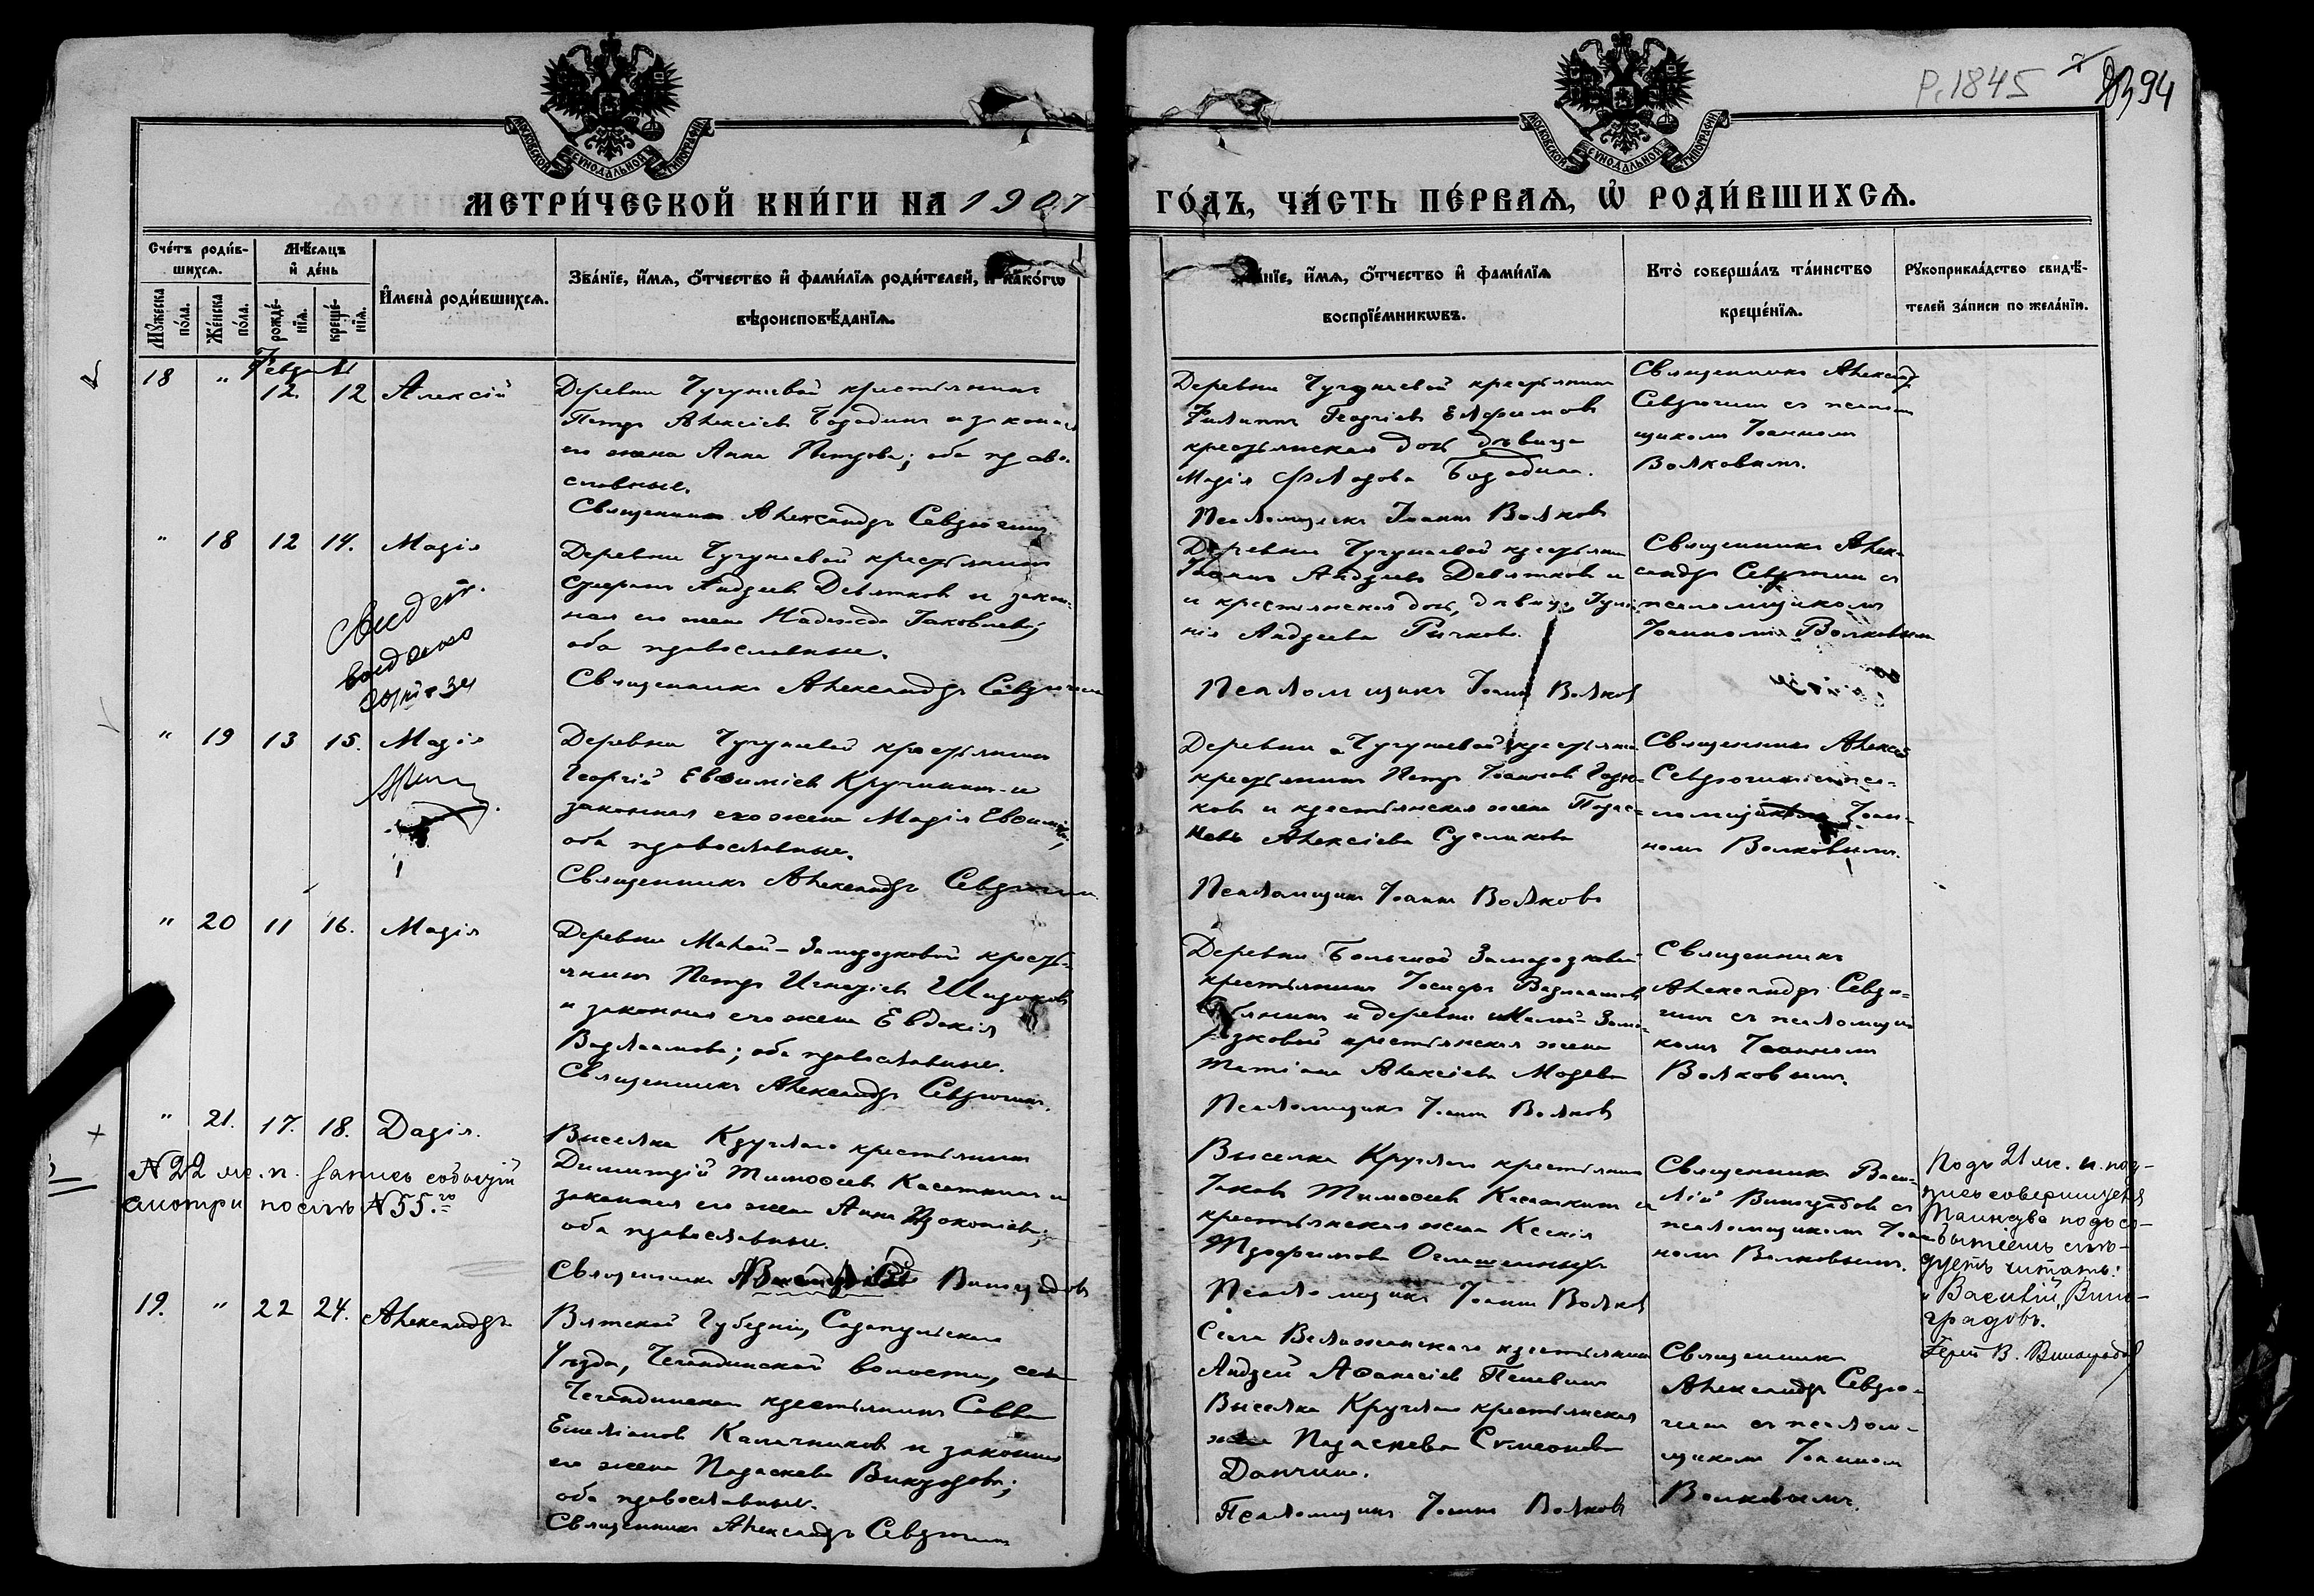 Р. 1845
94
МОСКОВСКОЙ СѴНОДАЛЬНОЙ ТИПОГРАФІИ
МОСКОВСКОЙ СѴНОДАЛЬНОЙ ТИПОГРАФІИ
МЕТРИ́ЧЕСКОЙ КНИ́ГИ НА 1907 ГО́ДЪ, ЧА́СТЬ ПЕ́РВАѦ, Ѽ РОДИ́ВШИХСѦ.
Сче́тъ роди́в-
шихсѧ.
Мѣ́сѧцъ
и҆ де́нь
Мꙋ́жеска по́ла.
Же́нска по́ла.
рожде́-
нїѧ.
креще́-
нїѧ.
И҆мена̀ роди́вшихсѧ.
Зва́нїе, и҆́мѧ, ѻ҆́тчество и҆ фами́лїѧ роди́телей, и҆ како́гѡ
вѣроисповѣ́данїѧ.
Зва́нїе, и҆́мѧ, ѻ҆́тчество и҆ фами́лїѧ
воспрїе́мникѡвъ.
Кто̀ соверша́лъ та́инство
креще́нїѧ.
Рꙋкоприкла́дство свидѣ́-
телей за́писи по жела́нїю.
Февраль
18 " 12. 12 Алексій
Деревни Чугуневой крестьянинъ
Петръ Алексіевъ Бородинъ и законная
его жена Анна Петрова; оба право-
славные.
Священникъ Александръ Севрюгинъ
Деревни Чугуневой крестьянинъ
Филиппъ Георгіевъ Елфимовъ
крестьянская дочь дѣвица
Марія Бородина.
Псаломщикъ Іоаннъ Волковъ
Священникъ Александръ
Севрюгинъ съ псалом
щикомъ Іоанномъ
Волковымъ.
" 18 12 14. Марія
Свидет.
выдано
Деревни Чугуневой крестьянинъ
Стефанъ Андреевъ Девятковъ и закон-
ная его жена Надежда Іаковлева;
оба православные.
Священникъ Александръ Севрюгинъ
Деревни Чугуневой крестьянинъ
Іоаннъ Андреевъ Девятковъ и
и крестьянская дочь, дѣвица
Андреева Рычкова.
Псаломщикъ Іоаннъ Волковъ
Священникъ Алек-
сандръ Севрюгинъ съ
псаломщикомъ
Іоанномъ Волковымъ
" 19 13 15. Марія
Деревни Чугуневой крестьянинъ
Георгій Евѳиміевъ Кручининъ и
законная его жена Марія Евѳиміева;
оба православные.
Священникъ Александръ Севрюгинъ
Деревни Чугуневой крестьянинъ
крестьянинъ Петръ Іоанновъ
ковъ и крестьянская жена Парас-
кева Алексіева Сусликова
Псаломщикъ Іоаннъ Волковъ
Священникъ Алексан
Севрюгинъ съ пса-
ломщикомъ Іоан-
номъ Волковымъ.
" 20 11 16. Марія
Деревни Малой-Заморозковой кресть-
янинъ Петръ Игнатіевъ Широковъ
и законная его жена Евдокія
Варлаамова; оба православные.
Священникъ Александръ Севрюгинъ.
Деревни Большой Заморозковой
крестьянинъ Іосифъ Варлаамовъ
и деревни Малой-Замо-
розковой крестьянская жена
Татіана Алексіева
Псаломщикъ Іоаннъ Волковъ
Священникъ
Александръ Севрю-
гинъ съ псаломщи
комъ Іоанномъ
Волковымъ.
" 21. 17. 18. Дарія.
№ 22 ж. п. запись событій
смотри послѣ № 55.го
Выселка Круглаго крестьянинъ
Димитрій Тимоѳеевъ Касаткинъ и
законная его жена Анна Прокопіева;
оба православные.
Священникъ Виноградовъ
Выселка Круглаго крестьянинъ
Іаковъ Тимоѳеевъ Касаткинъ и
крестьянская жена Ксенія
Трофимова
Псаломщикъ Іоаннъ Волковъ
Священникъ Васи-
лій Виноградовъ съ
псаломщикомъ Іоан-
номъ Волковымъ.
Подъ 21 ж. п. под-
пись совершителя
Таинства подъ со-
бытіемъ слѣ-
дуетъ читать:
"Василій" Вино-
градовъ.
Іерей В. Виноградовъ
19. " 22 24. Александръ
Вятской Губерніи, Сарапульскаго
Уѣзда, Чегандинской волости, села
Чегандинскаго крестьянинъ Савва
Емеліановъ Калачниковъ и законная
его жена Параскева
оба православные.
Священникъ Александръ Севрюгинъ
Села крестьянинъ
Андрей Аѳанасіевъ
Выселка Круглаго крестьянская
жена Параскева Симеонова
Данчина.
Псаломщикъ Іоаннъ Волковъ
Священникъ
Александръ Севрю-
гинъ съ псалом-
щикомъ Іоанномъ
Волковымъ.